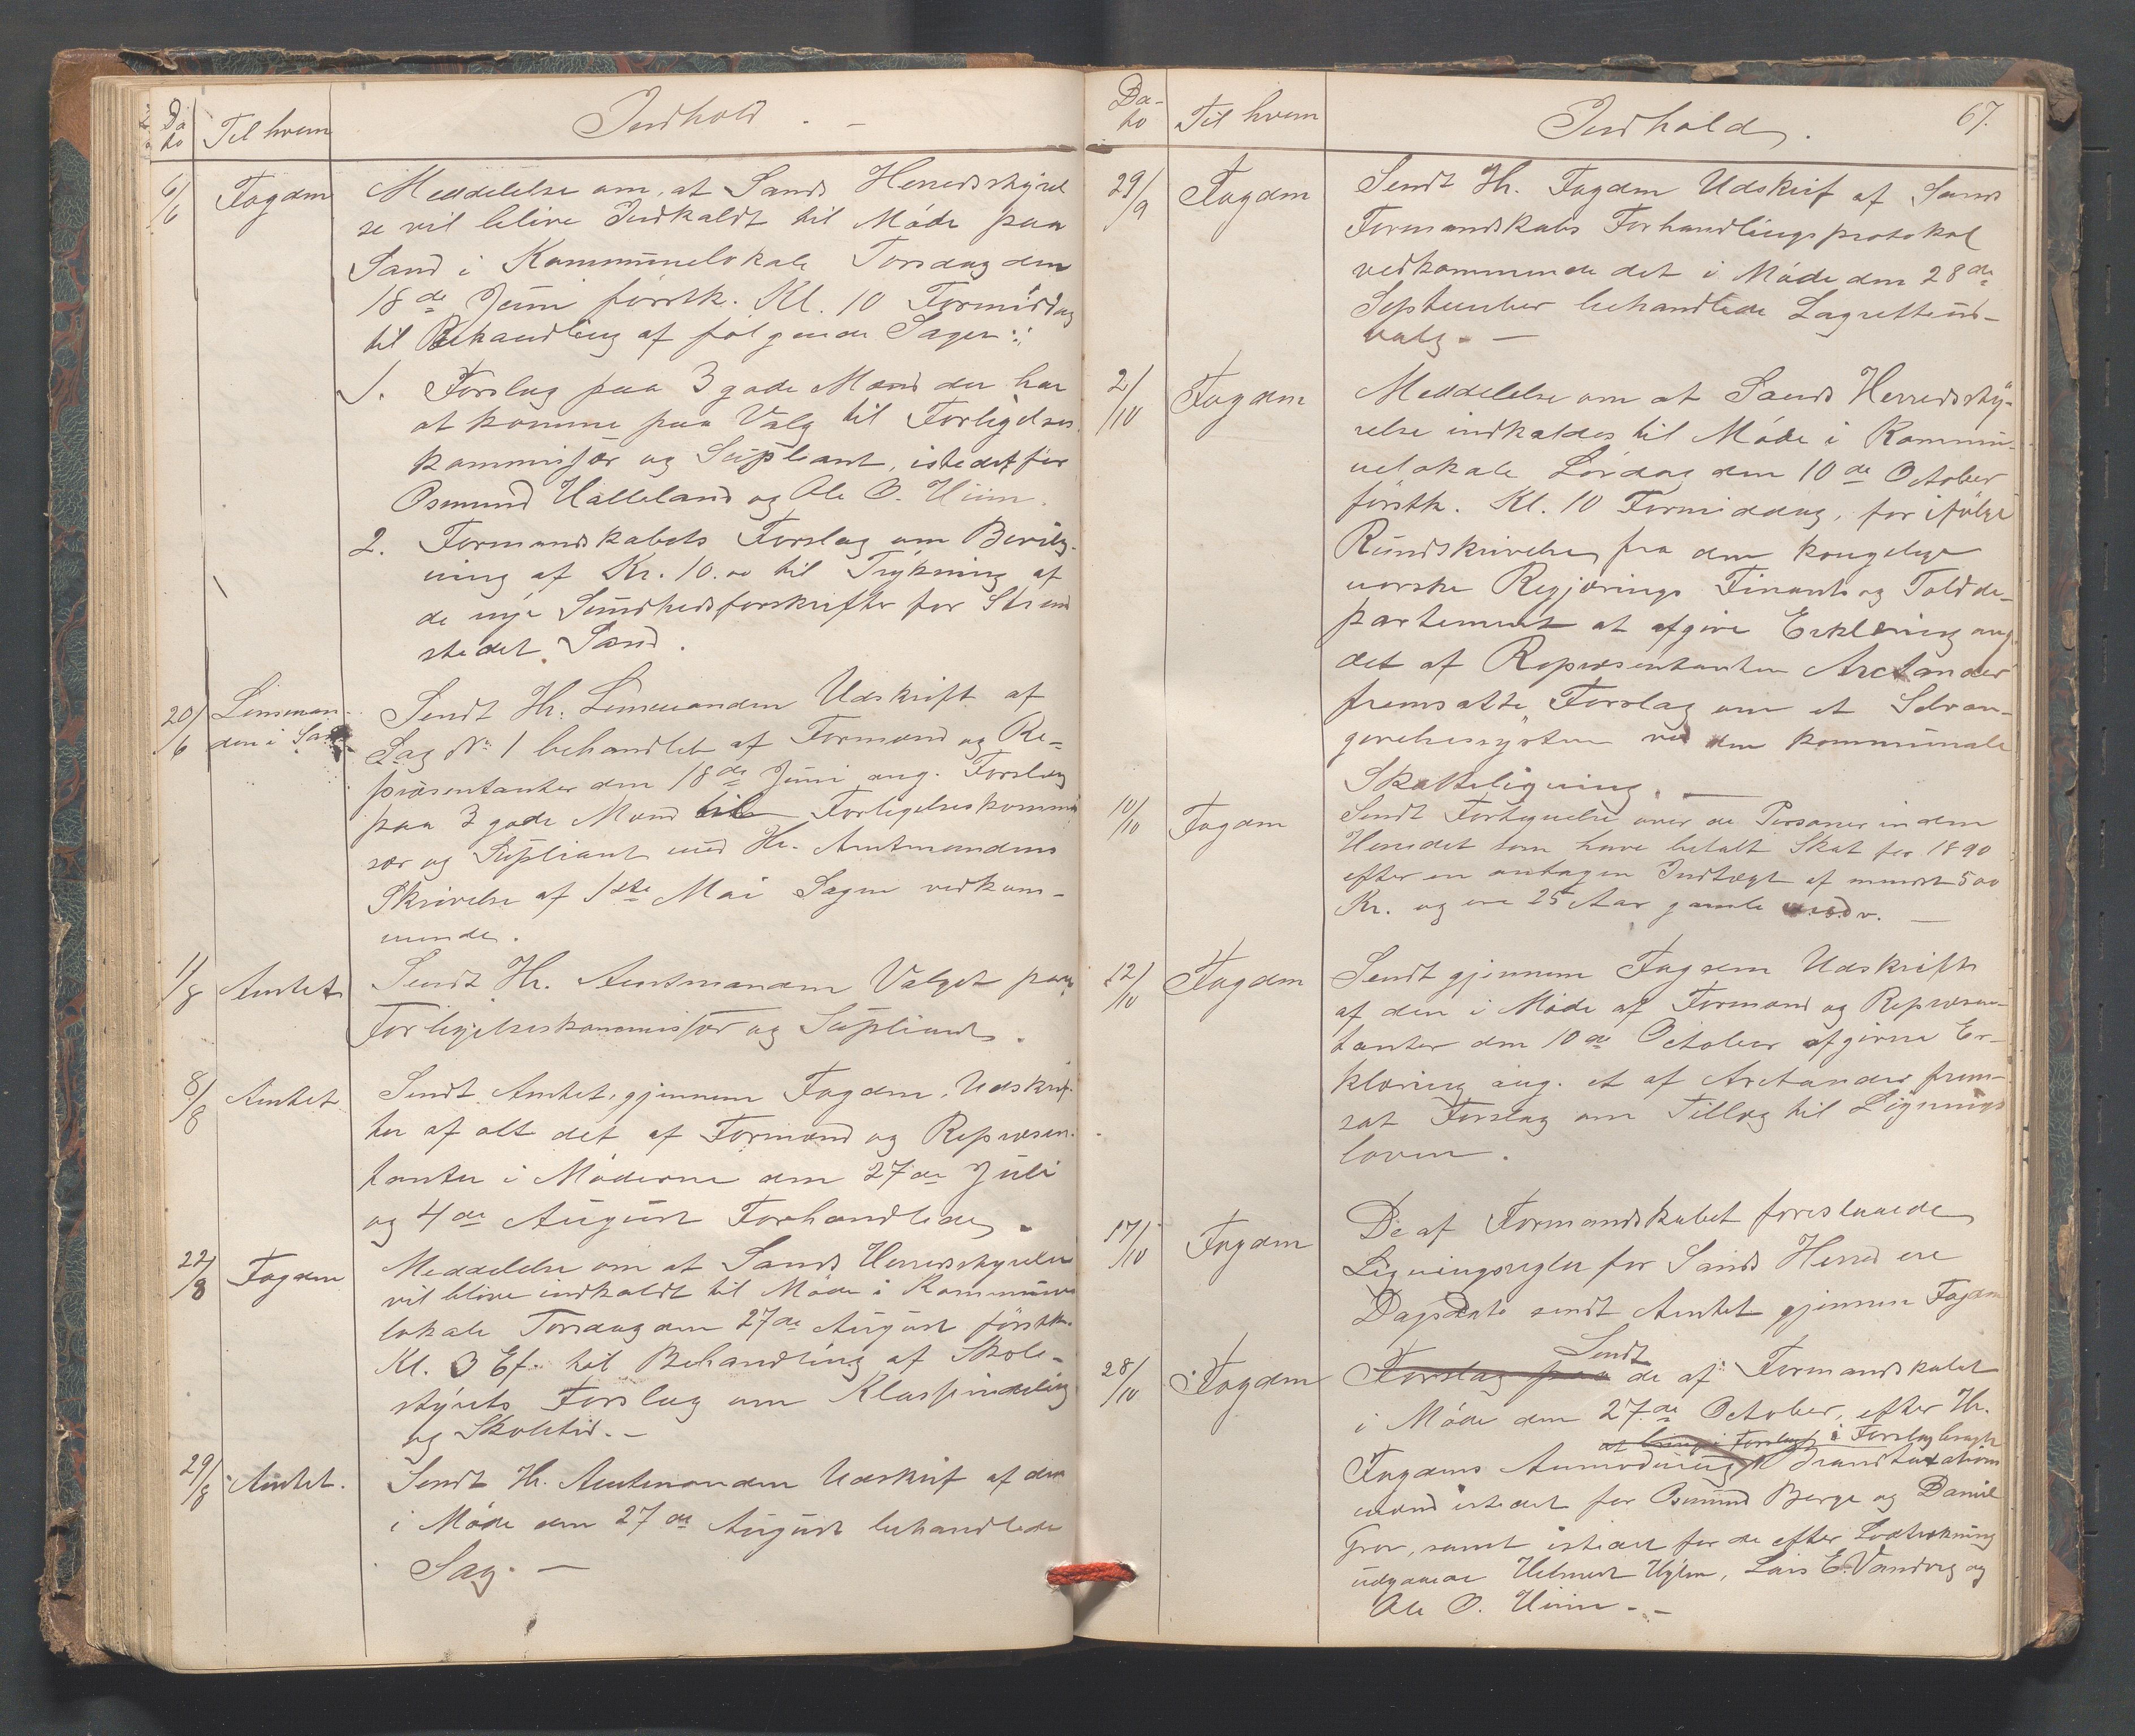 Da-
to
Til hvem
Indhold . –
6/6
Fogden
Meddelelse om, at Sands Herredsstyrel
se vil blive Indkaldt til Møde paa
Sand i Kommunelokale Torsdag den
18de Juni førstk. Kl. 10 Formiddag
til Behandling af følgende Sager:
1. Forslag paa 3 gode Mænd der har
at komme paa Valg til Forligelses
kommissær og Supleant, istedetfor
Osmund Halleland og Ole O. Hiim.
2. Formandskabets Forslag om Bevilg-
ning af Kr. 10.00 til Trykning af
de nye Sundhedsforskrifter for Strand
stedet Sand.
20/6
Lensman-
den i Sand
Sendt Hr. Lensmanden Udskrift af
Sag No 1 behandlet af Formænd og Re-
præsentanter den 18de Juni ang. Forslag
paa 3 gode Mænd til Forligelseskommis
sær og Supliant med Hr. Amtmandens
Skrivelse af 1ste Mai Sagen vedkom-
mende.
1/8
Amtet
Sendt Hr. Amtmanden Valget paa
Forligelseskommissær og Supliant.
8/8
Amtet
Sendt Amtet, gjennem Fogden, Udskrif-
ter af alt det af Formænd og Repræsen-
tanter i Møderne den 27de Juli
og 4de August Forhandlede.
22/8
Fogden
Meddelelse om at Sands Herredsstyrelse
vil blive indkaldt til Møde i Kommune
lokale Torsdag den 27de August førstk.
Kl. 3 Ef. til Behandling af Skole-
styrets Forslag om Klasseinddeling
og Skoletid. –
29/8
Amtet.
Sendt Hr. Amtmanden Udskrif af den
i Møde den 27de August behandlede
Sag. –
Da-
to
Til hvem
Indhold.
67.
29/9
Fogden
Sendt Hr. Fogden Udskrif af Sands
Formandskabs Forhandlingsprotokol
vedkommende det i Møde den 28de
September behandlede Lagrettéud-
valg. –
2/10
Fogden
Meddelelse om at Sands Herredssty-
relse indkaldes til Møde i Kommu-
nelokale Lørdag den 10de October
førstk. Kl. 10 Formiddag, for ifølge
Rundskrivelse fra den kongelige
norske Regjerings Finants og Told de-
partement at afgive Erklæring ang.
det af Repræsentanten Arctander
fremsatte Forslag om et Selvan-
givelsessystem ved den kommunale
Skatteligning. –
10/10
Fogden
Sendt Fortegnelse over de Personer inden
Herredet som have betalt Skat for 1890
efter en antagen Indtægt af mindst 500
Kr. og ere 25 Aar gamle m.v. –
12/10
Fogden
Sendt gjennem Fogden Udskrift
af den i Møde af Formænd og Repræsen-
tanter den 10de October afgivne Er-
klæring ang. et af Arctander frem-
sat Forslag om Tillæg til Lignings
loven.
17/10
Fogden
De af Formandskabet foreslaaede
Ligningsregler for Sands Herred ere
Dags Dato sendt Amtet gjennem Fogden
28/10
Fogden
Sendt
Forslag paa de af Formandskabet
i Møde den 27de October, efter Hr.
at bringe Forslag i Forslag bragte
Fogdens Anmodning Brandtaxations
mænd istedet for Osmund Berge og Daniel
Grov, samt istedet for de efter Lodtrækning
udgaaede Helmert Hylen, Lars E. Vandvig og
Ole O. Hiim. –